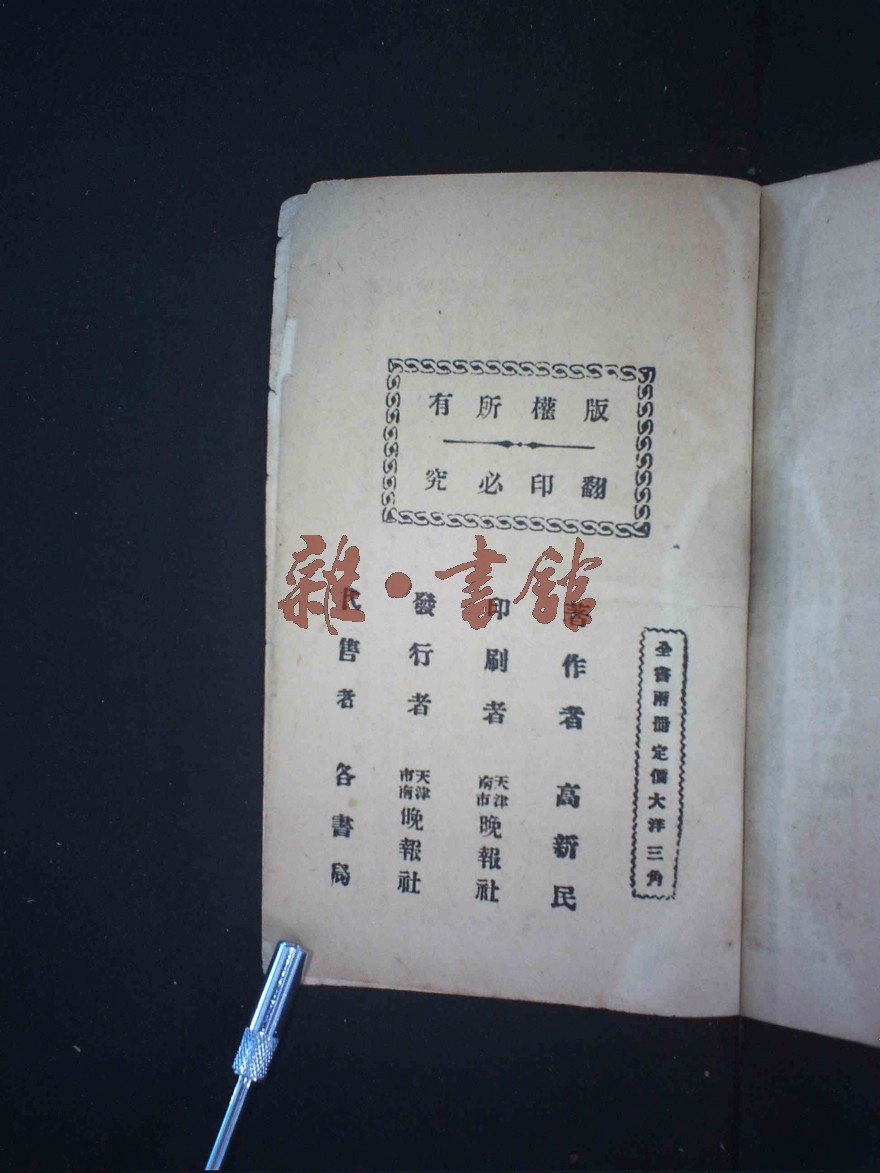 版權所有
翻印必究
全書兩冊定價大洋三角
著作者 高新民
印刷者 天津南市晚報社
發行者 天津市南晚報社
代售者 各書局
雜·書館